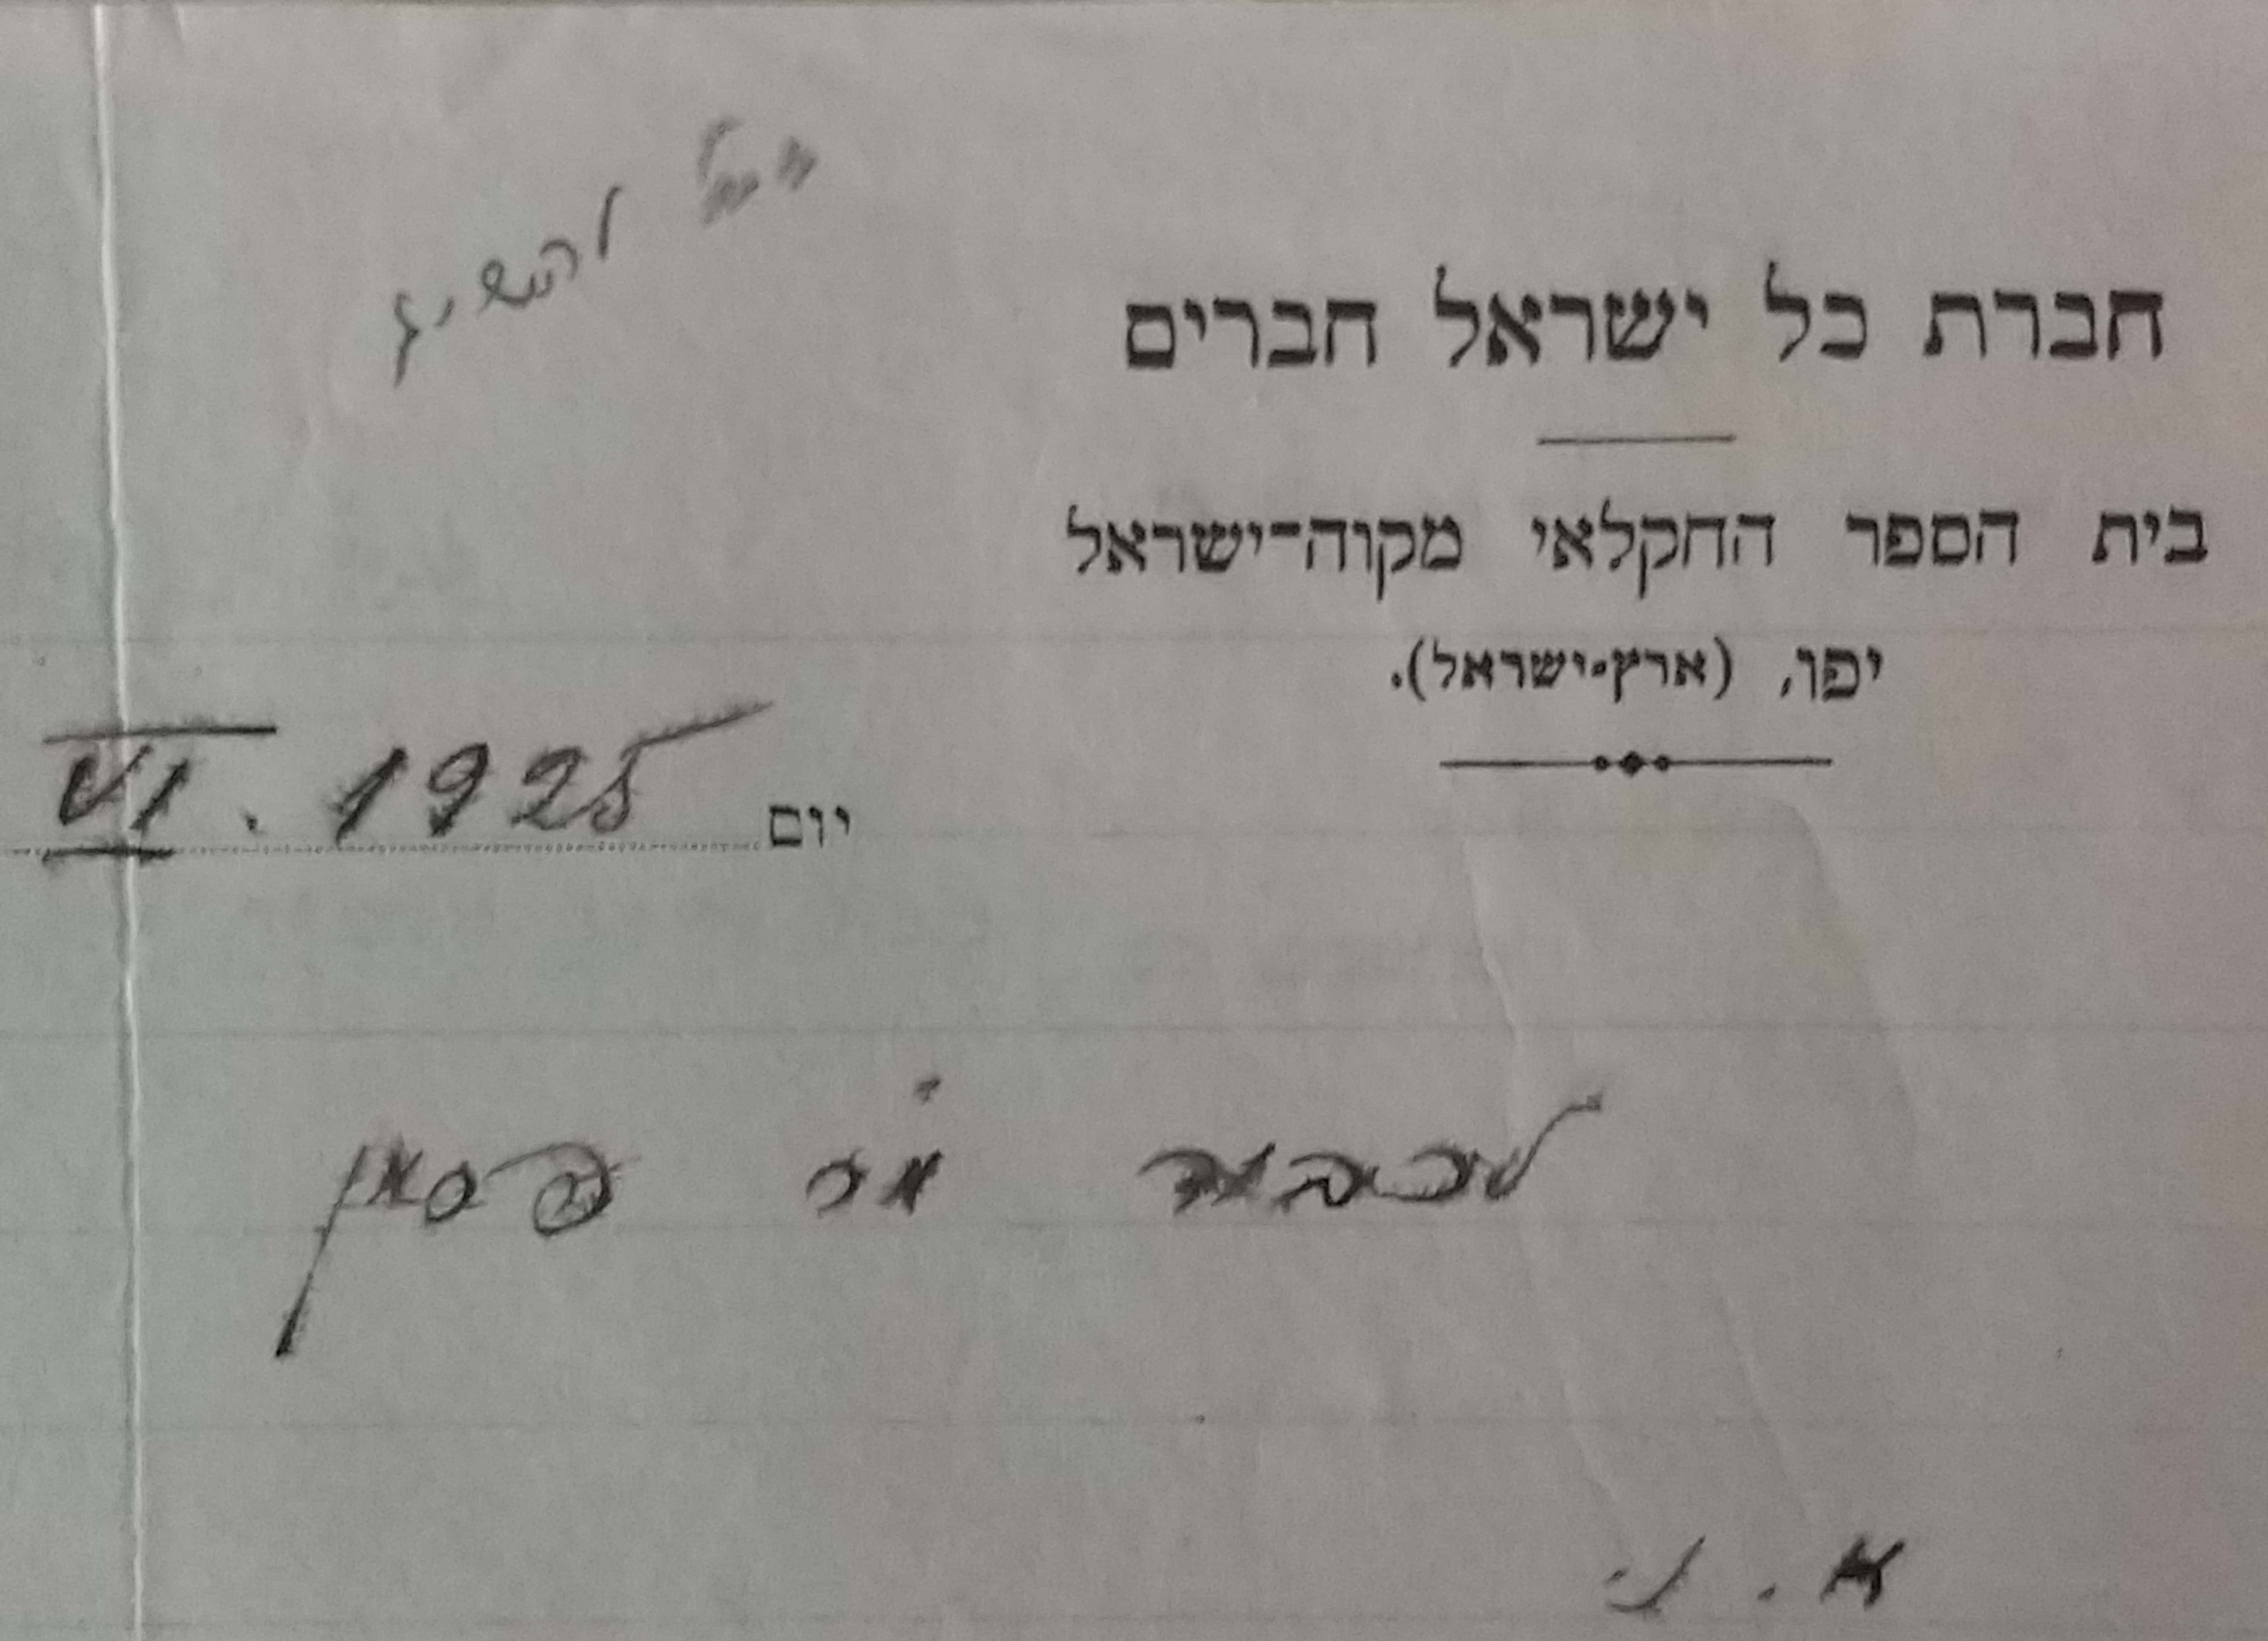 חברת כל ישראל חברים
בית הספר החקלאי מקוה־ישראל
יפו, (ארץ־ישראל).
יום VI. 1925
לכבוד
א. נ.